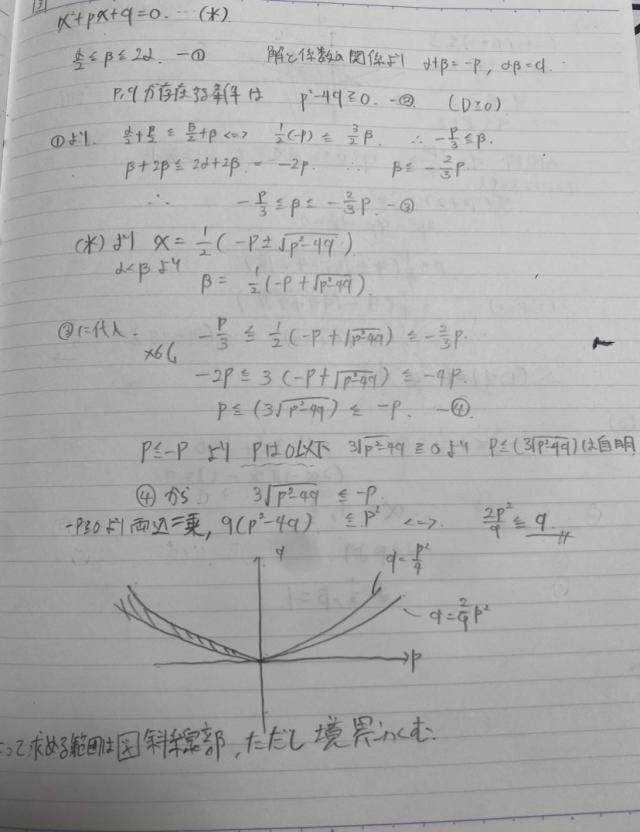 [3]
x²+px+q=0. … (木)
α/2 ≦ β ≦ 2α. —① 解と係数の関係より α+β=-p, αβ=q.
p, q が存在する条件は p²-4q≧0. —② (D≧0)
①より. α/2+β/2 ≦ β/2+β <=> 1/2(-p) ≦ 3/2β. ∴ -p/3 ≦ β.
β+2β ≦ 2α+2β = -2p. ∴ β ≦ -2/3p.
∴ -p/3 ≦ β ≦ -2/3p. —③
(木) より x = 1/2(-p±√p²-4q)
α<β より β = 1/2(-p+√p²-4q)
③に代入. -p/3 ≦ 1/2(-p+√p²-4q) ≦ -2/3p.
×6 -2p ≦ 3(-p+√p²-4q) ≦ -4p.
p ≦ (3√p²-4q) ≦ -p. —④.
p≦-p より pは0以下 3√p²-4q ≧0より p≦(3√p²-4q)は自明
④から 3√p²-4q ≦ -p.
-p≧0より両辺二乗, 9(p²-4q) ≦ p² <=> 2p²/9 ≦ q
q
q=p²/4
q=2/9p²
p
よって求める範囲は図斜線部, ただし境界ふくむ.